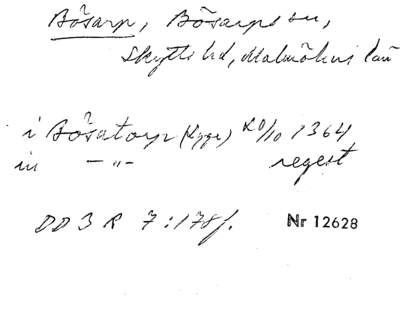 Bösarp, Bösarps sn,
Skytts hd, Malmöhus län
i Bösatorp (Kyge) 20/10 1364
in – " – regest
DD 3 R 7:178f. Nr 12628